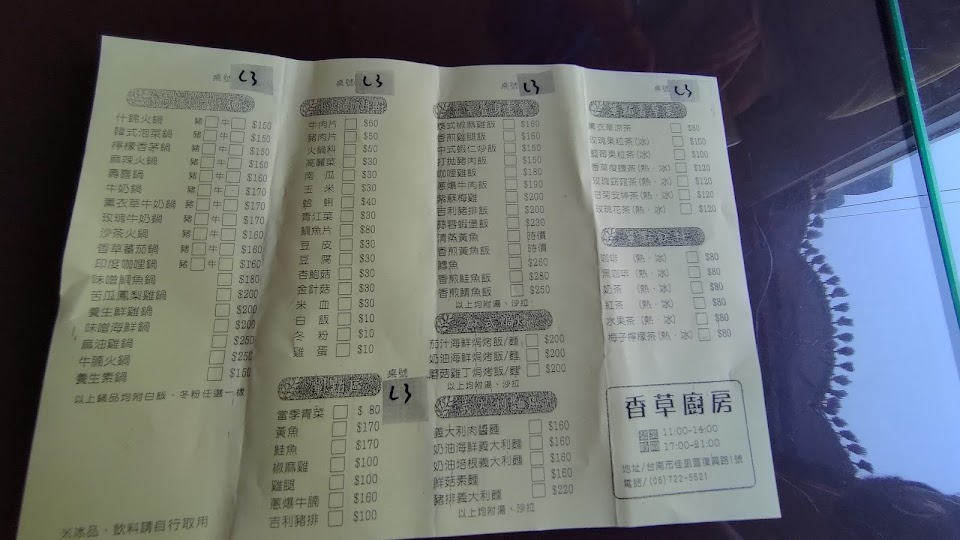 桌號 L3
什錦火鍋 豬□牛□ $160
韓式泡菜鍋 豬□牛□ $150
檸檬香茅鍋 豬□牛□ $150
麻辣火鍋 豬□牛□ $160
壽喜鍋 豬□牛□ $160
牛奶鍋 豬□牛□ $170
薰衣草牛奶鍋 豬□牛□ $170
玫瑰牛奶鍋 豬□牛□ $170
沙茶火鍋 豬□牛□ $160
香草蕃茄鍋 豬□牛□ $160
印度咖哩鍋 豬□牛□ $160
味噌鯛魚鍋 □ $180
苦瓜鳳梨雞鍋 □ $200
養生鮮雞鍋 □ $200
味噌海鮮鍋 □ $200
麻油雞鍋 □ $250
牛腩火鍋 □ $250
養生素鍋 □ $150
以上鍋品均附白飯、冬粉任選一樣
※冰品、飲料請自行取用
桌號 L3
牛肉片 □ $60
豬肉片 □ $50
火鍋料 □ $50
高麗菜 □ $30
南瓜 □ $30
玉米 □ $30
蛤蜊 □ $40
青江菜 □ $30
鯛魚片 □ $80
豆皮 □ $30
豆腐 □ $30
杏鮑菇 □ $30
金針菇 □ $30
米血 □ $30
白飯 □ $10
冬粉 □ $10
雞蛋 □ $10
桌號 L3
當季青菜 □ $80
黃魚 □ $170
鮭魚 □ $170
椒麻雞 □ $100
雞腿 □ $100
蔥爆牛腩 □ $160
吉利豬排 □ $100
桌號 L3
泰式椒麻雞飯 □ $160
香煎雞腿飯 □ $160
中式蝦仁炒飯 □ $150
打拋豬肉飯 □ $150
咖哩雞飯 □ $180
蔥爆牛肉飯 □ $190
紫蘇梅雞 □ $200
吉利豬排飯 □ $200
蒜蓉蝦堡飯 □ $230
清蒸黃魚 □ 時價
香煎黃魚飯 □ 時價
鱈魚 □ $260
香煎鮭魚飯 □ $280
香煎鯖魚飯 □ $250
以上均附湯、沙拉
茄汁海鮮焗烤飯/麵 □ $200
奶油海鮮焗烤飯/麵 □ $200
蘑菇雞丁焗烤飯/麵 □ $200
以上均附湯、沙拉
義大利肉醬麵 □ $160
奶油海鮮義大利麵 □ $160
奶油培根義大利麵 □ $160
鮮菇素麵 □ $160
豬排義大利麵 □ $220
以上均附湯、沙拉
桌號 L3
薰衣草涼茶 □ $80
玫瑰果粒茶(冰) □ $100
藍莓果粒茶(冰) □ $100
香草復腰茶(熱·冰) □ $120
玫瑰菇菇茶(熱·冰) □ $120
甘菊安神茶(熱·冰) □ $120
玫瑰花茶(熱·冰) □ $120
咖啡 (熱·冰) □ $80
黑咖啡 (熱·冰) □ $80
奶茶 (熱·冰) □ $80
紅茶 (熱·冰) □ $80
水果茶 (熱·冰) □ $80
梅子檸檬茶(熱·冰) □ $80
香草廚房
11:00-14:00
17:00-21:00
地址/台南市佳里區復興路1號
電話/(06)722-5521